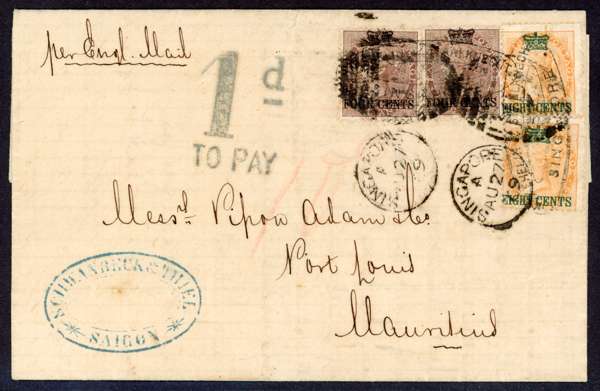 per Engl. Mail
1d
TO PAY
FOUR CENTS
FOUR CENTS
EIGHT CENTS
EIGHT CENTS
SINGAPORE
A
AU 27
9
SINGAPORE
A
AU 27
9
Messrs. Vipon Adam & Co.
Port Louis
Mauritius
SCHWANBECK & THIEL
* SAIGON *